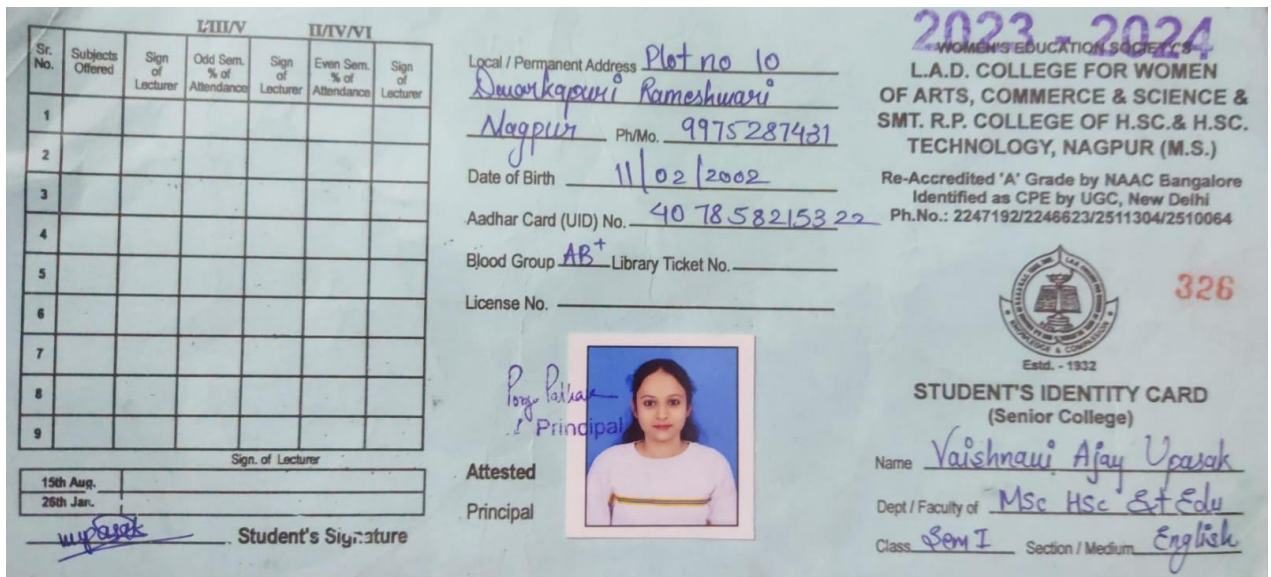 I/III/V II/IV/VI
Sr. No. Subjects Offered Sign of Lecturer Odd Sem. % of Attendance Sign of Lecturer Even Sem. % of Attendance Sign of Lecturer
1
2
3
4
5
6
7
8
9
Sign. of Lecturer
15th Aug.
26th Jan.
Student's Signature
Local / Permanent Address Plot no 10
Dwarkapuri Rameshwari
Nagpur Ph/Mo. 9975287431
Date of Birth 11/02/2002
Aadhar Card (UID) No. 407858215322
Blood Group AB+ Library Ticket No.
License No.
Principal
Attested
Principal
2023 - 2024
WOMEN'S EDUCATION SOCIETY'S
L.A.D. COLLEGE FOR WOMEN
OF ARTS, COMMERCE & SCIENCE &
SMT. R.P. COLLEGE OF H.SC.& H.SC.
TECHNOLOGY, NAGPUR (M.S.)
Re-Accredited 'A' Grade by NAAC Bangalore
Identified as CPE by UGC, New Delhi
Ph.No.: 2247192/2246623/2511304/2510064
326
KNOWLEDGE & COMPASSION
Estd. - 1932
STUDENT'S IDENTITY CARD
(Senior College)
Name Vaishnavi Ajay Upasak
Dept / Faculty of MSc HSc Ext Edu
Class Sem I Section / Medium English